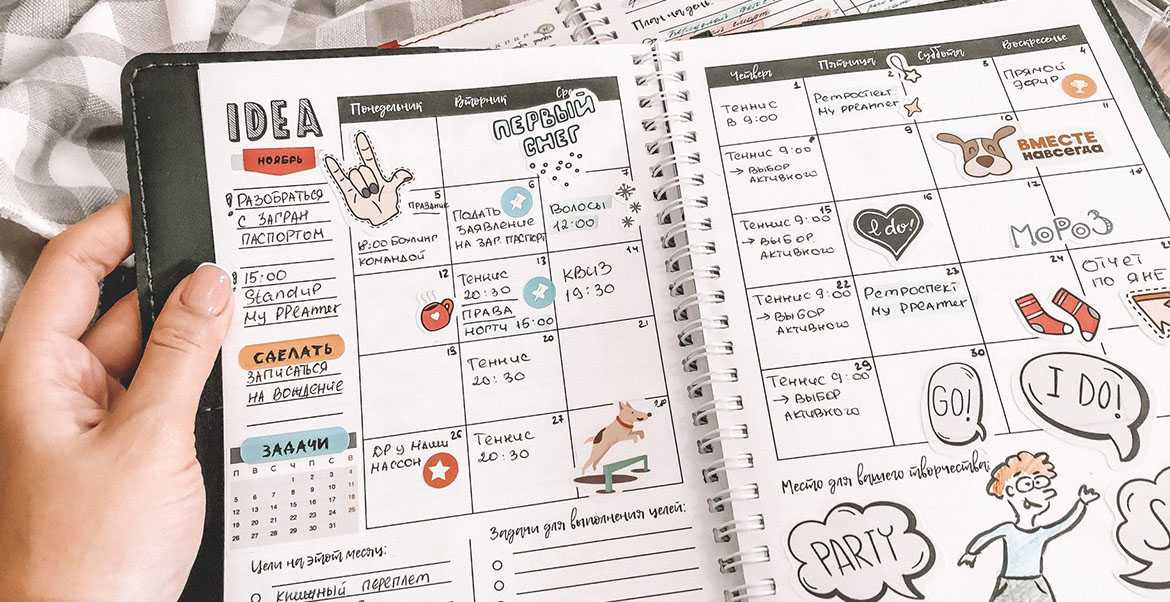 План на день:
IDEA
НОЯБРЬ
РАЗОБРАТЬСЯ
С ЗАГРАН
ПАСПОРТОМ
15:00
StandUp
My PPEAmer
СДЕЛАТЬ
ЗАПИСАТЬСЯ
НА ВОЖДЕНИЕ
ЗАДАЧИ
П В С Ч П С В
1 2 3 4
5 6 7 8 9 10 11
12 13 14 15 16 17 18
19 20 21 22 23 24 25
26 27 28 29 30
Понедельник Вторник
ПЕРВЫЙ
СНЕГ
5 ПРАЗДНИК
18:00 БОУЛИНГ
КОМАНДОЙ
6
ПОДАТЬ
ЗАЯВЛЕНИЕ
НА ЗАГ. ПАСПОРТ
7
ВОЛОСЫ
12:00
12
13
ТЕННИС
20:30
ПРАВА
НОГТИ 15:00
14
КВИЗ
19:30
19
20
ТЕННИС
20:30
21
26
ДР У НАШИ
МАССОН
27
ТЕННИС
20:30
28
Цели на этот месяц:
КНИЖНЫЙ ПЕРЕПЛЕТ
Задачи для выполнения целей:
Четверг Пятница Суббота Воскресенье
1
ТЕННИС
В 9:00
2
РЕТРОСПЕКТ
My PPEAmer
3
4
ПРЯМОЙ
ЭФИР
ТЕННИС 9:00
→ ВЫБОР
АКТИВНОГО
9
10
ВМЕСТЕ
НАВСЕГДА
11
15
ТЕННИС 9:00
→ ВЫБОР
АКТИВНОГО
16
I do!
МОРОЗ
22
ТЕННИС 9:00
→ ВЫБОР
АКТИВНОГО
23
РЕТРОСПЕКТ
My PPEAmer
24
ОТЧЕТ
29
ТЕННИС 9:00
→ ВЫБОР
АКТИВНОГО
30
GO!
I DO!
Место для вашего творчества:
PARTY